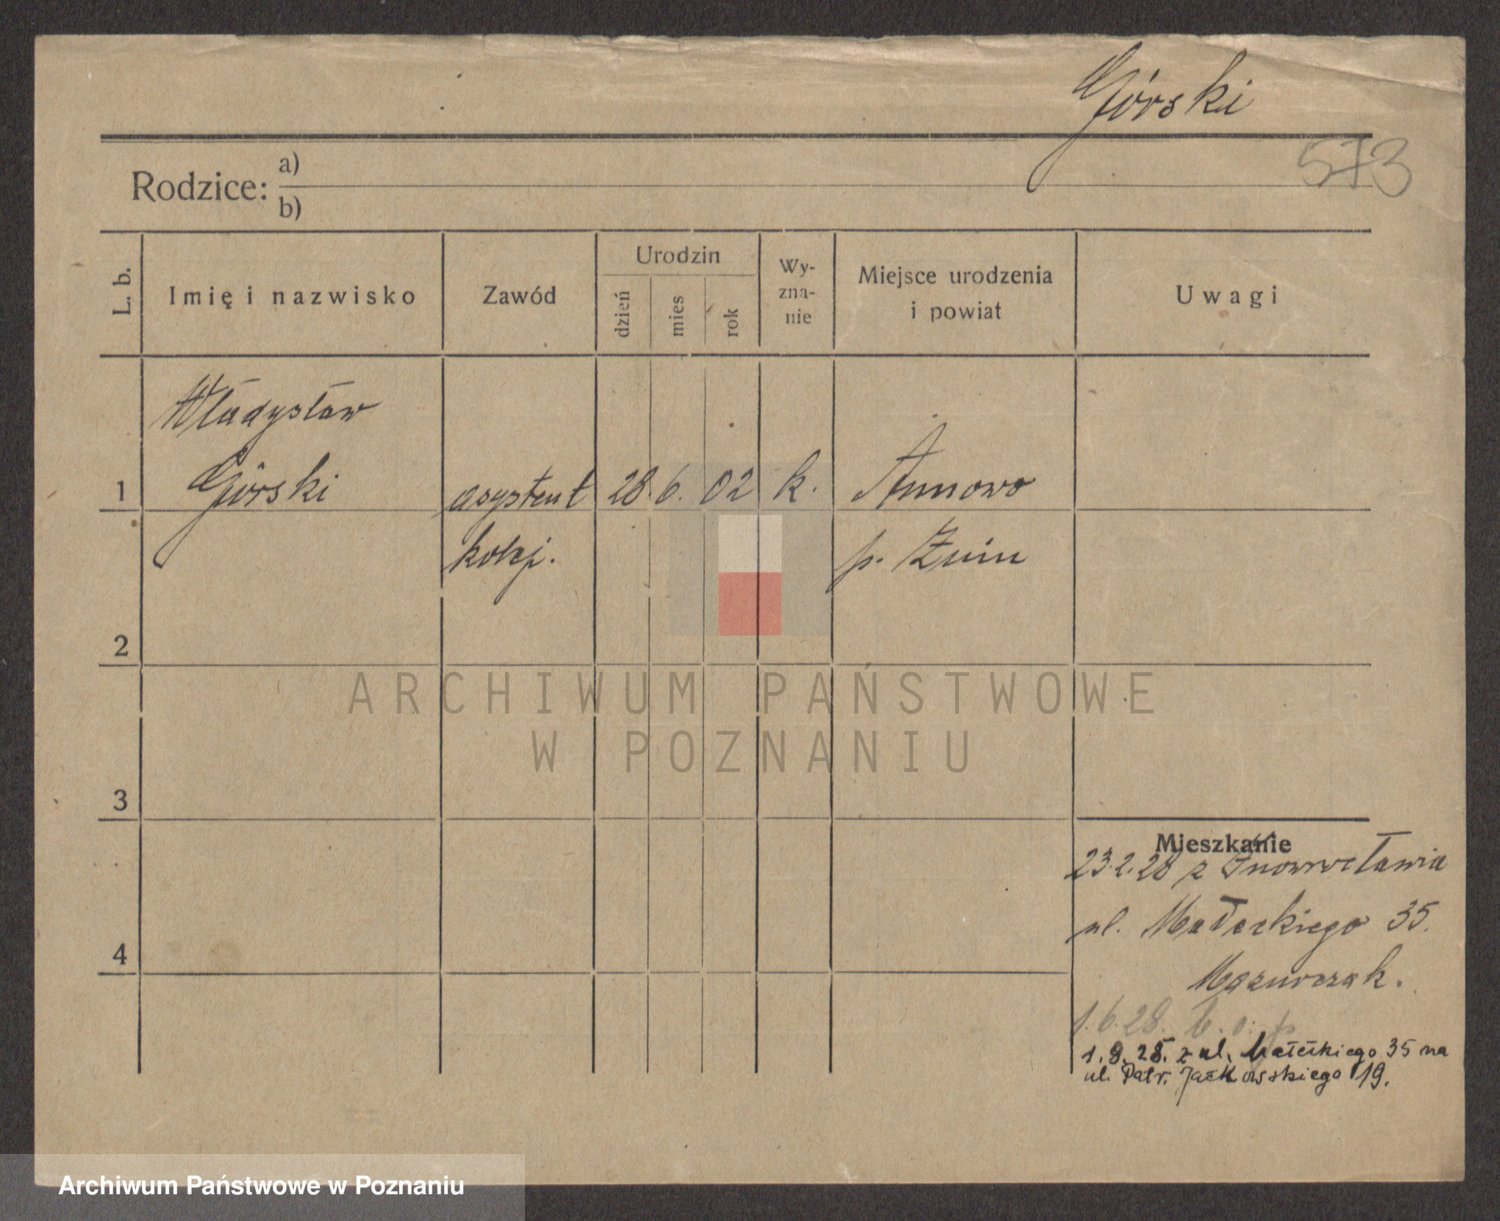 Górski
573
Rodzice: a)
b)
L. b.
Imię i nazwisko
Zawód
Urodzin
dzień
mies
rok
Wy-
zna-
nie
Miejsce urodzenia
i powiat
Uwagi
Władysław
1 Górski asystent 28. 6. 02 k. Annowo
kolej. p. Żnin
2
ARCHIWUM PAŃSTWOWE
W POZNANIU
3
Mieszkanie
23.2.28 z Inowrocławia
ul. Małeckiego 35.
4
Mazurczak.
1.6.28.
1.9.28. z ul. Małeckiego 35 na
ul. Patr. Jackowskiego 19.
Archiwum Państwowe w Poznaniu